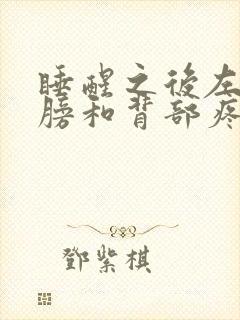 睡醒之後左
膀和背部疼
鄧紫棋